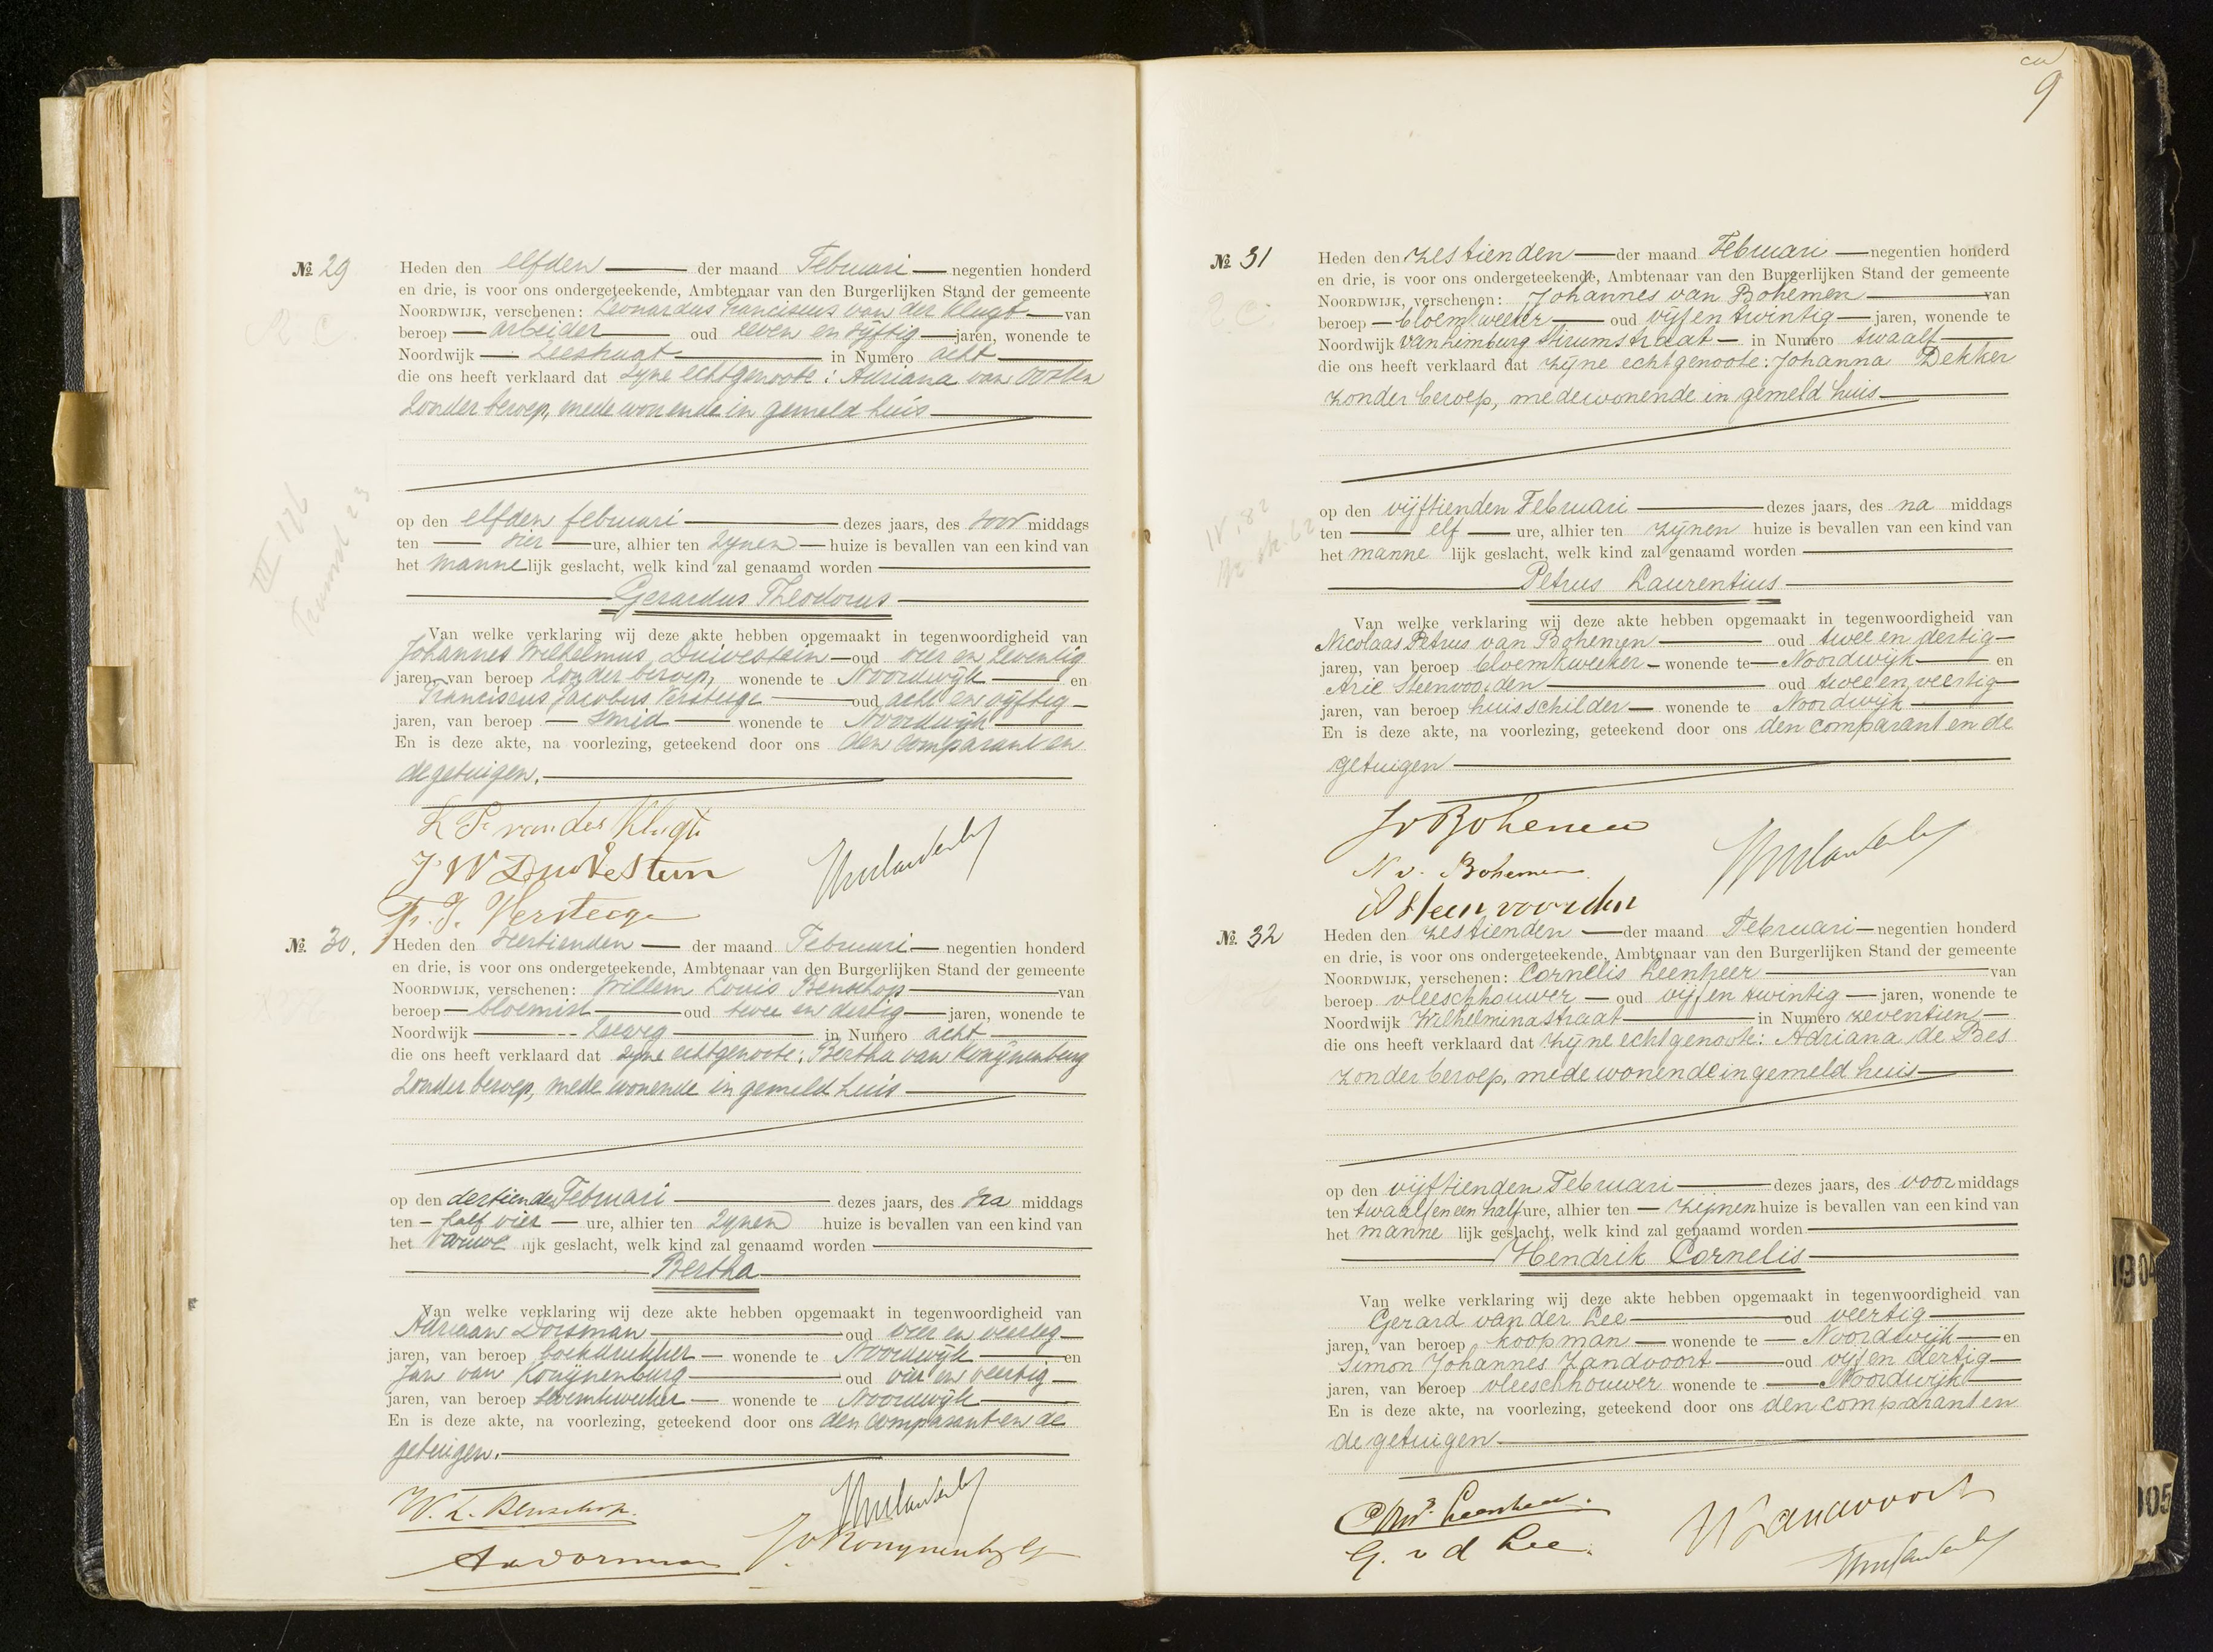 № 29
Heden den elfden der maand Februari negentien honderd
en drie, is voor ons ondergeteekende, Ambtenaar van den Burgerlijken Stand der gemeente
NOORDWIJK, verschenen: Leonardus Franciscus van der Klugt van
beroep arbeider oud zeven en vijftig jaren, wonende te
Noordwijk Zeestraat in Numero acht
die ons heeft verklaard dat zyne echtgenoote: Adriana van Oosten
zonder beroep, mede wonende in gemeld huis
op den elfden februari dezes jaars, des voor middags
ten vier ure, alhier ten zynen huize is bevallen van een kind van
het mannelijk geslacht, welk kind zal genaamd worden
Gerardus Theodorus
Van welke verklaring wij deze akte hebben opgemaakt in tegenwoordigheid van
Johannes Wilhelmus Duivestein oud vier en zeventig
jaren, van beroep zonder beroep, wonende te Noordwijk en
Franciscus Jacobus Versteege oud acht en vijftig
jaren, van beroep smid wonende te Noordwijk
En is deze akte, na voorlezing, geteekend door ons den comparant en
de getuigen.
L F van der Klugt
J W Duivestein
Fr. J. Versteege
R. C.
III 176
№ 30.
Heden den veertienden der maand Februari negentien honderd
en drie, is voor ons ondergeteekende, Ambtenaar van den Burgerlijken Stand der gemeente
NOORDWIJK, verschenen: Willem Louis Benschop van
beroep bloemist oud twee en dertig jaren, wonende te
Noordwijk in Numero acht
die ons heeft verklaard dat zyne echtgenoote: Bertha van Konijnenburg
zonder beroep, mede wonende in gemeld huis
op den dertienden Februari dezes jaars, des na middags
ten half vier ure, alhier ten zynen huize is bevallen van een kind van
het vrouwe lijk geslacht, welk kind zal genaamd worden
Bertha
Van welke verklaring wij deze akte hebben opgemaakt in tegenwoordigheid van
Adriaan Dorsman oud vier en veertig
jaren, van beroep boekdrukker wonende te Noordwijk en
Jan van Konijnenburg oud vier en veertig
jaren, van beroep bloemkweeker wonende te Noordwijk
En is deze akte, na voorlezing, geteekend door ons den comparant en de
getuigen.
W. L. Benschop.
J v Konynenburg
9
№ 31
Heden den zestienden der maand Februari negentien honderd
en drie, is voor ons ondergeteekende, Ambtenaar van den Burgerlijken Stand der gemeente
NOORDWIJK, verschenen: Johannes van Bohemen van
beroep bloemkweeker oud vijf en twintig jaren, wonende te
Noordwijk van Limburg Stirumstraat in Numero twaalf
die ons heeft verklaard dat zijne echtgenoote: Johanna Dekker
zonder beroep, mede wonende in gemeld huis
op den vijftienden Februari dezes jaars, des na middags
ten elf ure, alhier ten zijnen huize is bevallen van een kind van
het manne lijk geslacht, welk kind zal genaamd worden
Petrus Laurentius
Van welke verklaring wij deze akte hebben opgemaakt in tegenwoordigheid van
Nicolaas Petrus van Bohemen oud twee en dertig
jaren, van beroep bloemkweeker wonende te Noordwijk en
Arie Steenvoorden oud twee en veertig
jaren, van beroep huisschilder wonende te Noordwijk
En is deze akte, na voorlezing, geteekend door ons den comparant en de
getuigen
J v Bohemen
N v. Bohemen
A Steenvoorden
№ 32
Heden den zestienden der maand Februari negentien honderd
en drie, is voor ons ondergeteekende, Ambtenaar van den Burgerlijken Stand der gemeente
NOORDWIJK, verschenen: Cornelis Leenheer van
beroep vleeschhouwer oud vijf en twintig jaren, wonende te
Noordwijk Wilhelminastraat in Numero zeventien
die ons heeft verklaard dat zijne echtgenoote: Adriana de Bes
zonder beroep, mede wonende in gemeld huis
op den vijftienden Februari dezes jaars, des voor middags
ten twaalf en een half ure, alhier ten zijnen huize is bevallen van een kind van
het manne lijk geslacht, welk kind zal genaamd worden
Hendrik Cornelis
Van welke verklaring wij deze akte hebben opgemaakt in tegenwoordigheid van
Gerard van der Lee oud veertig
jaren, van beroep koopman wonende te Noordwijk en
Simon Johannes Zandvoort oud vijf en dertig
jaren, van beroep vleeschhouwer wonende te Noordwijk
En is deze akte, na voorlezing, geteekend door ons den comparant en
de getuigen
G. v d Lee.
Zandvoort
1904